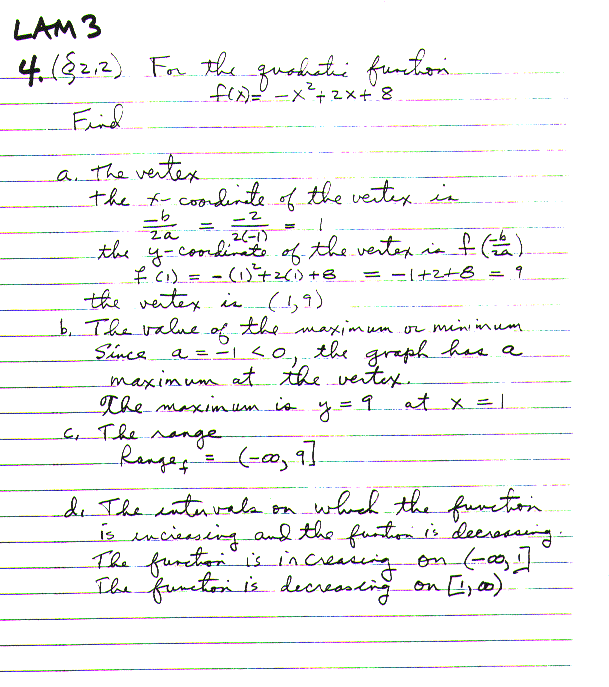 LAM 3
4. (§2.2) For the quadratic function
f(x) = -x²+2x+8
Find
a. The vertex
the x-coordinate of the vertex is
-b/2a = -2/2(-1) = 1
the y-coordinate of the vertex is f(-b/2a)
f(1) = -(1)²+2(1)+8 = -1+2+8 = 9
the vertex is (1,9)
b. The value of the maximum or minimum
Since a = -1 < 0, the graph has a
maximum at the vertex.
The maximum is y = 9 at x = 1
c. The range
Range_f = (-∞, 9]
d. The intervals on which the function
is increasing and the funtion is decreasing.
The function is increasing on (-∞, 1]
The function is decreasing on [1, ∞)